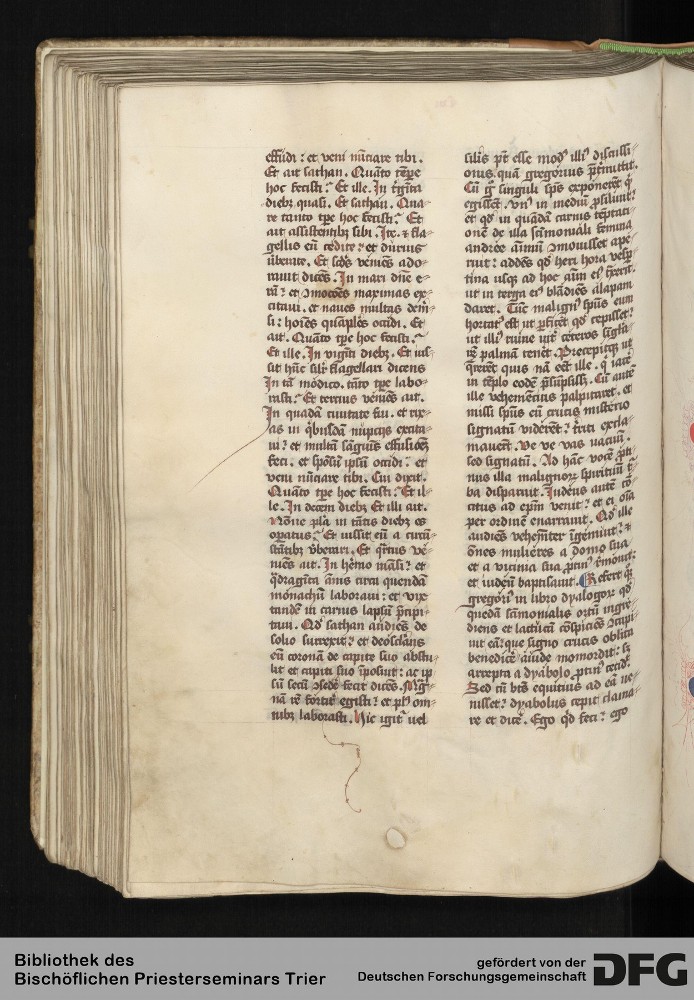 effudi: et veni nūciare tibi.
Et ait sathan. Quāto tēpe
hoc fecisti? Et ille. In tⁱgīta
diebꝫ quasi. Et sathan. Qua-
re tanto tpe hoc fecisti? Et
ait assistentibꝫ sibi. Ite. ⁊ fla-
gellis eū cedite: et durius
ūberate. Et scd̄s veniēs ado-
rauit dicēs. In mari dn̄e e-
rā: et ꝯmotōes maximas ex-
citaui. et naues multas dem̄-
si: hoīes quāplēs occidi. Et
ait. Quāto tpe hoc fecisti?
Et ille. In vigīti diebꝫ. Et ius-
sit hūc silīr flagellari dicens
In tā modico. tāto tpe labo-
rasti? Et tercius veniēs ait.
In quadā ciuitate fui. et rix-
as in qⁱbusdā nupcijs excita-
ui: et multā sāguīs effusionē
feci. et spōsū ipsū occidi: et
veni nūciare tibi. Cui dixit.
Quāto tpe hoc fecisti? Et il-
le. In decem diebꝫ Et illi ait.
Nōne pl̄a in tātis diebꝫ es
opatus? Et iussit eū a circū-
stātibꝫ v̄berari. Et qͣrtus ve-
niēs ait. In hemo māsi: et
qͣdragīta ānis circa quendā
monachū laboraui: et vix
tandē in carnis lapsū p̄cipi-
taui. Qd̄ sathan audiēs de
solio surrexit: et deosclās
eū coronā de capite suo abstu-
lit et capiti suo īposuit: ac ip̄-
sū secū ꝯsedē fecit dicēs. Mag-
nā rē fortit̄ egisti: et plꝰ om-
nibꝫ laborasti. Hic igit̄ uel
silis pt̄ esse modꝰ illiꝰ discussi-
onis quā gregorius p̄t̄mittit.
Cū gͦ singuli sp̄s exponerēt qͥd
egissēt. Vnꝰ in mediū ꝓsiliit:
et qd̄ in quādā carnis tēptati-
onē de illa sāmoniali femina
andree aīmū ꝯmouisset ape-
riit: addēs qd̄ heri hora vesp̄-
tina usqꝫ ad hoc aīm eiꝰ t̄xerit.
ut in terga eiꝰ blādiēs alapam
daret. Tūc malignꝰ sp̄us eum
hortatꝰ est ut ꝑficēt qd̄ cepisset:
ut illi ruine uit̄ ceteros sīgla-
rē palmā tenēt. Precepitqꝫ ut
q̄rerēt quis nā eēt ille. qͥ iacē
in tēplo eodē p̄sūpsiss̄. Cū autē
ille vehementius palpitaret. et
missi sp̄us eū crucis misterio
signatū vidērēt: ēriti excla-
mauerūt. Ve ve vas vacuū.
sed signatū. Ad hāc vocē ꝓti-
nus illa malignoꝝ spirituū t̄-
ba disparuit. Iudeus autē cō-
citus ad ep̄m venit: et ei oīa
per ordinē enarrauit. Qd̄ ille
audiēs vehemēter īgemuit: ⁊
oēs muliēres a domo sua
et a vicinia sua ꝓtinꝰ t̄mouit:
et iudeū baptisauit. Refert qͦqꝫ
gregoriꝰ in libro dyalogoꝝ qd̄
quedā sāmonialis ortū ingre-
diens et lactucā cōspiciēs ꝯcupi-
uit eā: que signo crucis oblita
benedicē auide momordit: sꝫ
arrepta a dyabolo ꝓtinꝰ cecid̄.
Sed cū bt̄s equitius ad eā ve-
nisset: dyabolus cepit clama-
re et dicē. Ego qͥd feci: ego
Bibliothek des
Bischöflichen Priesterseminars Trier
gefördert von der
Deutschen Forschungsgemeinschaft
DFG